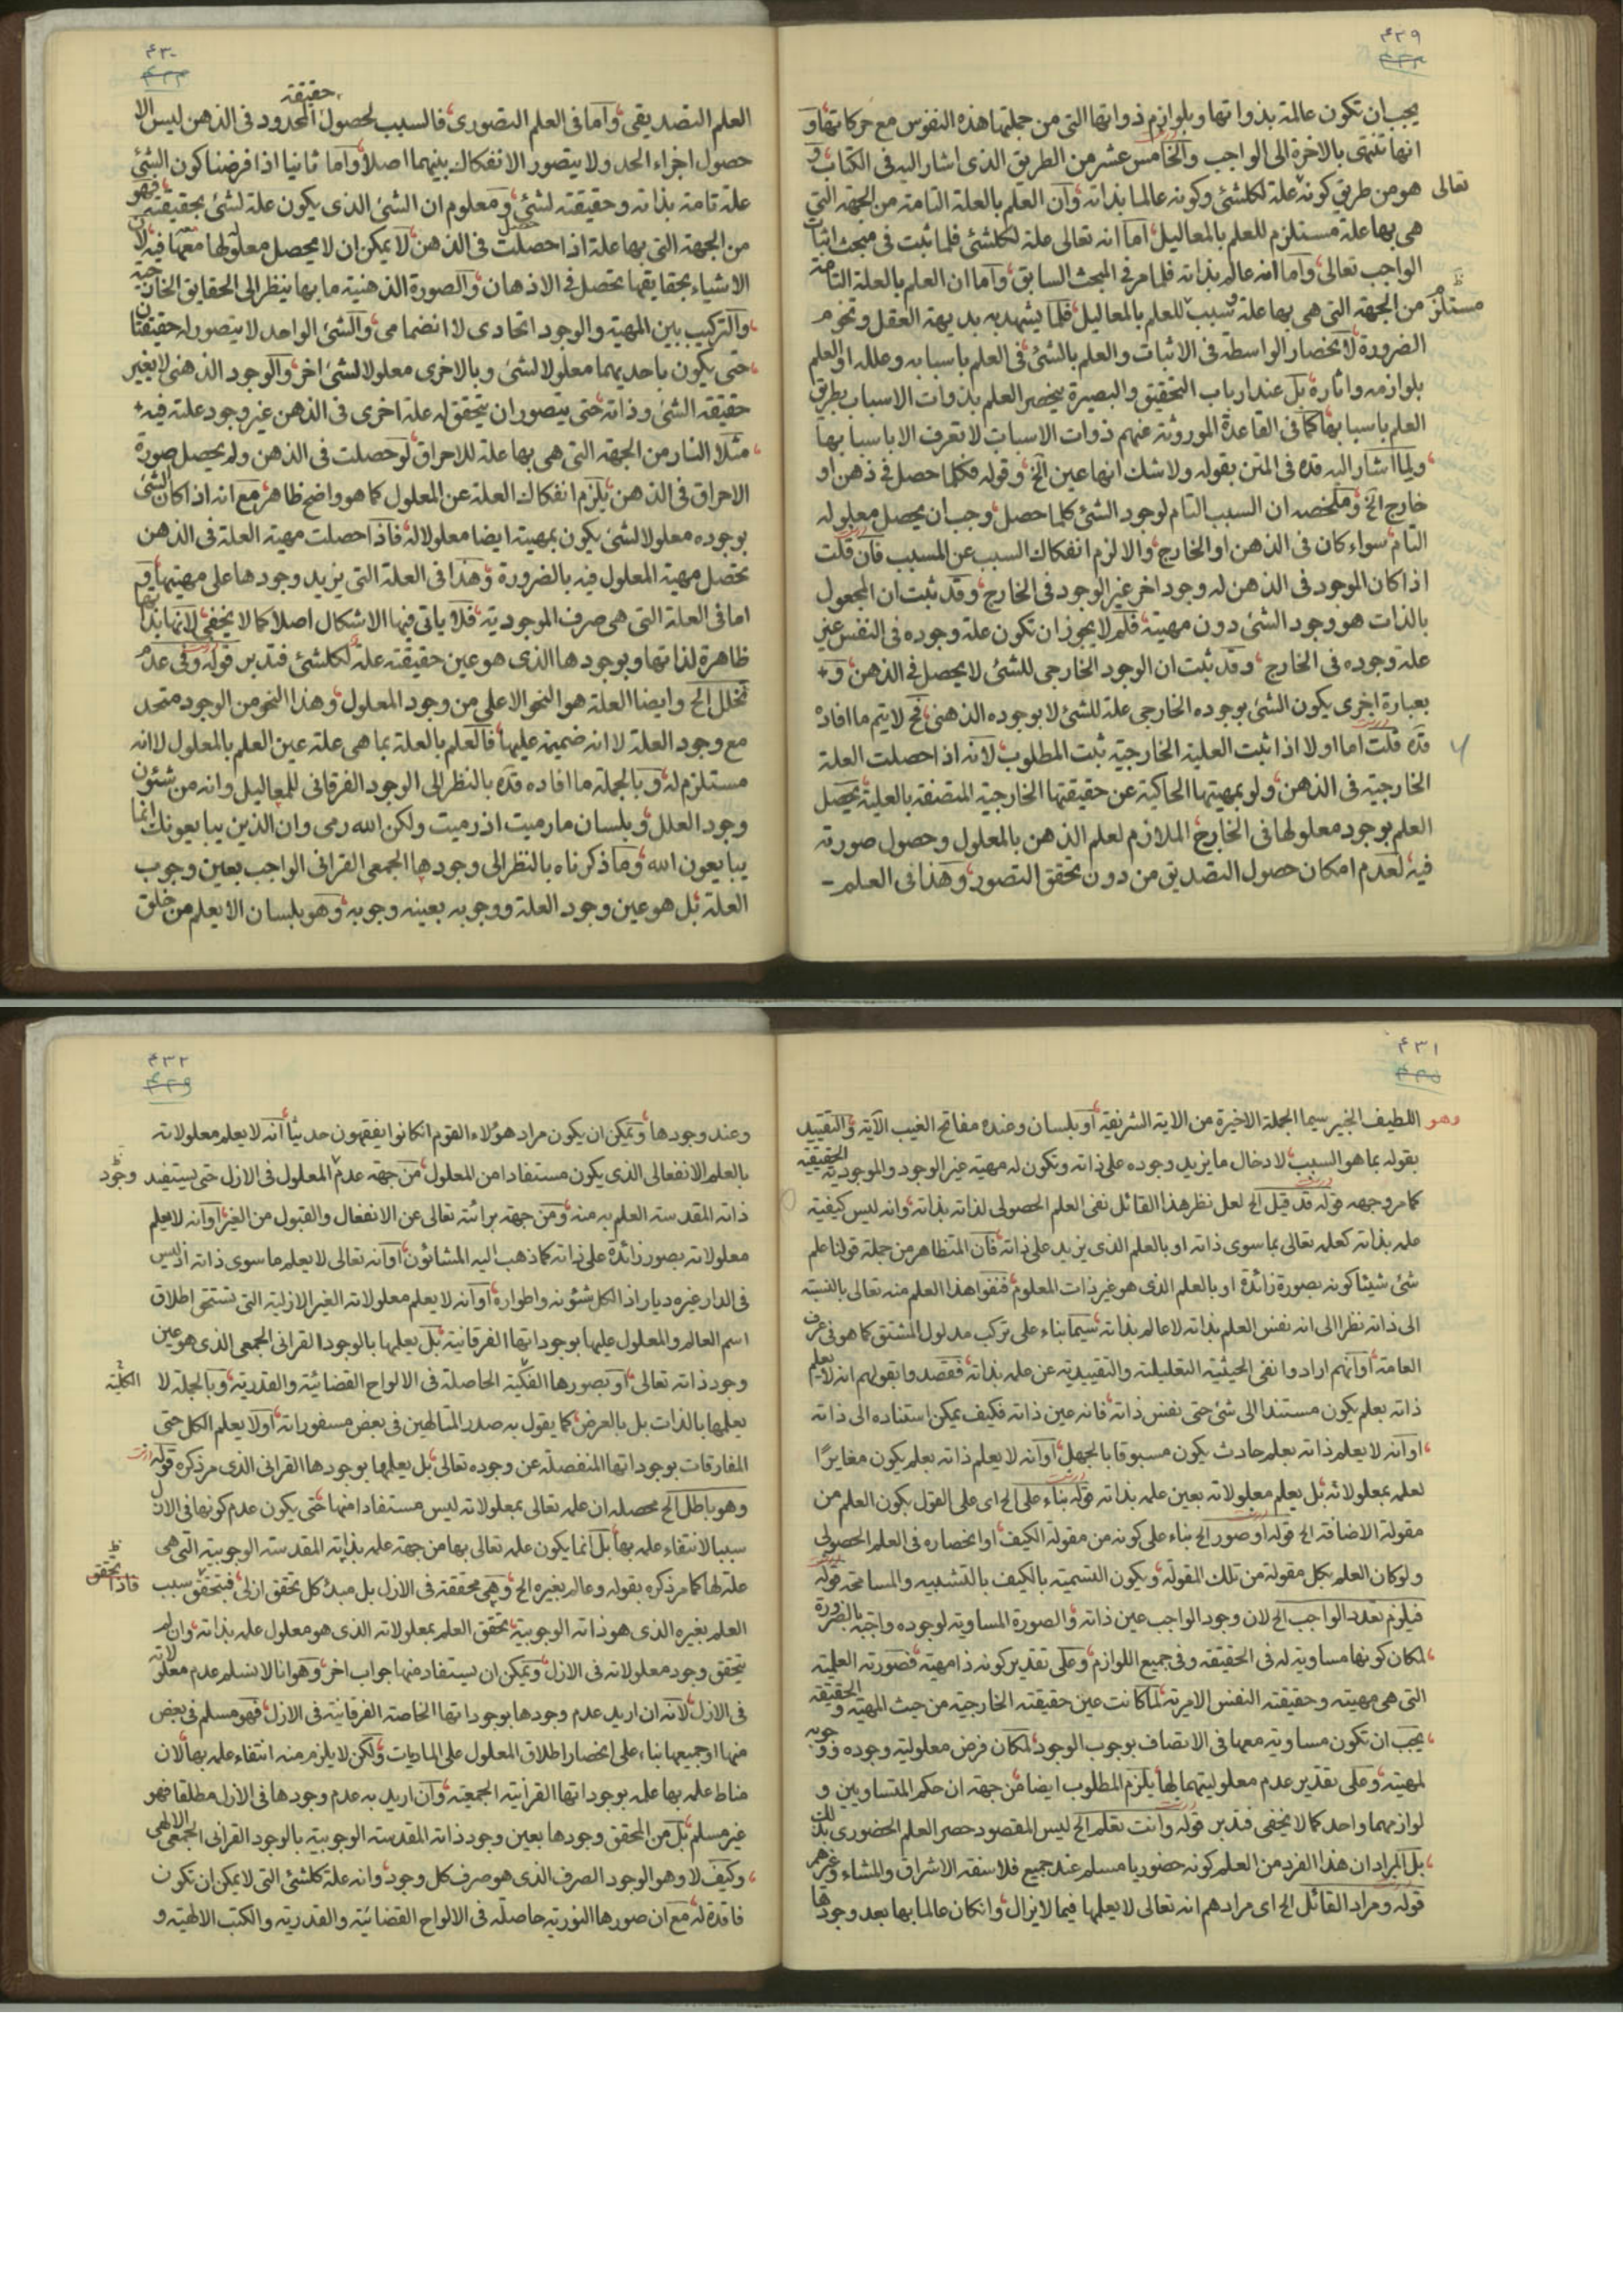 ۴۲۹
یجب ان تکون عالمة بذواتها و بلوازم ذواتها التی من جملتها هذه النفوس مع حرکاتها و
انها تنتهی بالاخرة الی الواجب والخامس عشر من الطریق الذی اشار الیه فی الکتاب و
هو من طریق کونه علة لکلشئ وکونه عالما بذاته وان العلم بالعلة التامة من الجهة التی
تعالی
هی بها علة مستلزم للعلم بالمعالیل اما انه تعالی علة لکلشئ فلما ثبت فی مبحث اثبات
الواجب تعالی واما انه عالم بذاته فلما مر فی المبحث السابق واما ان العلم بالعلة التامة
من الجهة التی هی بها علة وسبب للعلم بالمعالیل فلما یشهد به بدیهة العقل وتخوم
مستلزم
الضرورة لانحصار الواسطة فی الاثبات والعلم بالشئ فی العلم باسبابه وعلله او العلم
بلوازمه واثاره بل عند ارباب التحقیق والبصیرة ینحصر العلم بذوات الاسباب بطریق
العلم باسبابها کما فی القاعدة الموروثة عنهم ذوات الاسباب لا تعرف الا باسبابها
ولما اشار الیه قده فی المتن بقوله ولا شک انها عین الخ وقوله فکلما حصل فی ذهن او
خارج الخ وملخصه ان السبب التام لوجود الشئ کلما حصل وجب ان یحصل معلوله
التام سواء کان فی الذهن او الخارج والا لزم انفکاک السبب عن المسبب فان قلت
اذا کان الموجود فی الذهن له وجود اخر غیر الوجود فی الخارج وقد ثبت ان المجعول
بالذات هو وجود الشئ دون مهیته فلم لا یجوز ان تکون علة وجوده فی النفس غیر
علة وجوده فی الخارج وقد ثبت ان الوجود الخارجی للشئ لا یحصل فی الذهن و
بعبارة اخری یکون الشئ بوجوده الخارجی علة للشئ لا بوجوده الذهنی فح لا یتم ما افاده
قده قلت اما اولا اذا ثبت العلیة الخارجیة ثبت المطلوب لانه اذا حصلت العلة
الخارجیة فی الذهن ولو بمهیتها الحاکیة عن حقیقتها الخارجیة المتصفة بالعلیة یحصل
العلم بوجود معلولها فی الخارج الملازم لعلم الذهن بالمعلول وحصول صورته
فیه لعدم امکان حصول التصدیق من دون تحقق التصور وهذا فی العلم
۴۳۰
العلم التصدیقی واما فی العلم التصوری فالسبب لحصول حقیقة المحدود فی الذهن لیس الا
حصول اجزاء الحد ولا یتصور الانفکاک بینهما اصلا واما ثانیا اذا فرضنا کون الشئ
علة تامة بذاته وحقیقته لشئ ومعلوم ان الشئ الذی یکون علة لشئ بحقیقته فهو
من الجهة التی بها علة اذا حصلت فی الذهن لا یمکن ان لا یحصل معلولها معها فیه لان
الاشیاء بحقایقها تحصل فی الاذهان والصورة الذهنیة ما بها ینظر الی الحقایق الخارجیة
والترکیب بین المهیة والوجود اتحادی لا انضمامی والشئ الواحد لا یتصور له حقیقتان
حتی یکون باحدیهما معلولا لشئ وبالاخری معلولا لشئ اخر والوجود الذهنی لا یغیر
حقیقة الشئ وذاته حتی یتصور ان یتحقق له علة اخری فی الذهن غیر وجود علته فیه
مثلا النار من الجهة التی هی بها علة للاحراق لو حصلت فی الذهن ولم یحصل صورة
الاحراق فی الذهن یلزم انفکاک العلة عن المعلول کما هو واضح ظاهر مع انه اذا کان الشئ
بوجوده معلولا لشئ یکون بمهیته ایضا معلولا له فاذا حصلت مهیة العلة فی الذهن
تحصل مهیة المعلول فیه بالضرورة وهذا فی العلة التی یزید وجودها علی مهیتها و
اما فی العلة التی هی صرف الموجودیة فلا یاتی فیها الاشکال اصلا کما لا یخفی لانها بذاتها
ظاهرة لذاتها وبوجودها الذی هو عین حقیقته علة لکلشئ فتدبر قوله وفی عدم
تخلل الخ وایضا العلة هو النحو الاعلی من وجود المعلول وهذا النحو من الوجود متحد
مع وجود العلة لا انه ضمیمة علیها فالعلم بالعلة بما هی علة عین العلم بالمعلول لا انه
مستلزم له وبالجملة ما افاده قده بالنظر الی الوجود الفرقانی للمعالیل وانه من شئون
وجود العلل وبلسان مارمیت اذ رمیت ولکن الله رمی وان الذین یبایعونک انما
یبایعون الله وما ذکرناه بالنظر الی وجودها الجمعی القرانی الواجب بعین وجوب
العلة بل هو عین وجود العلة ووجوبه بعینه وجوبه وهو بلسان الا یعلم من خلق
۴۳۱
وهو اللطیف الخبیر سیما الجملة الاخیرة من الایة الشریفة او بلسان وعنده مفاتح الغیب الآیة والتقیید
بقوله بما هو السبب لادخال ما یزید وجوده علی ذاته وتکون له مهیة غیر الوجود والموجودیة الحقیقیة
کما مر وجهه قوله قد قیل الخ لعل نظر هذا القائل نفی العلم الحصولی لذاته بذاته وانه لیس کیفیة
علمه بذاته کعلمه تعالی بما سوی ذاته او بالعلم الذی یزید علی ذاته فان المتظاهر من جملة قولنا علم
شئ شیئا کونه بصورة زائدة او بالعلم الذی هو غیر ذات المعلوم فنفوا هذا العلم منه تعالی بالنسبة
الی ذاته نظرا الی انه نفس العلم بذاته لا عالم بذاته سیما بناء علی ترکب مدلول المشتق کما هو فی عرف
العامة او انهم ارادوا نفی الحیثیة التعلیلیة والتقییدیة عن علمه بذاته فقصدوا بقولهم انه لا یعلم
ذاته بعلم یکون مستندا الی شئ حتی نفس ذاته فانه عین ذاته فکیف یمکن استناده الی ذاته
او انه لا یعلم ذاته بعلم حادث یکون مسبوقا بالجهل او انه لا یعلم ذاته بعلم یکون مغایرًا
لعلمه بمعلولاته بل یعلم معلولاته بعین علمه بذاته قوله بناء علی الخ ای علی القول بکون العلم من
مقولة الاضافة الخ قوله او صور الخ بناء علی کونه من مقولة الکیف او انحصاره فی العلم الحصولی
ولو کان العلم بکل مقولة من تلک المقولة ویکون التسمیة بالکیف بالتشبیه والمسامحة قوله
فیلزم تعدد الواجب الخ لان وجود الواجب عین ذاته والصورة المساویة لوجوده واجبة بالضرورة
لمکان کونها مساویة له فی الحقیقة وفی جمیع اللوازم وعلی تقدیر کونه ذا مهیة فصورته العلمیة
التی هی مهیته وحقیقته النفس الامریة لما کانت عین حقیقته الخارجیة من حیث المهیة والحقیقة
یجب ان تکون مساویة معها فی الاتصاف بوجوب الوجود لمکان فرض معلولیة وجوده ووجوبه
لمهیته وعلی تقدیر عدم معلولیتهما لها یلزم المطلوب ایضا من جهة ان حکم المتساویین و
لوازمهما واحد کما لا یخفی فتدبر قوله وانت تعلم الخ لیس المقصود حصر العلم الحضوری بذلک
بل المراد ان هذا الفرد من العلم کونه حضوریا مسلم عند جمیع فلاسفة الاشراق والمشاء وغیرهم
قوله ومراد القائل الخ ای مرادهم انه تعالی لا یعلمها فیما لا یزال وانکان عالما بها بعد وجودها
۴۳۲
وعند وجودها ویمکن ان یکون مراد هؤلاء القوم انکانوا یفقهون حدیثا انه لا یعلم معلولاته
بالعلم الانفعالی الذی یکون مستفادا من المعلول من جهة عدم المعلول فی الازل حتی یستفید
وجود
ذاته المقدسة العلم به منه ومن جهة برائته تعالی عن الانفعال والقبول من الغیر او انه لا یعلم
معلولاته بصور زائدة علی ذاته کما ذهب الیه المشائون او انه تعالی لا یعلم ما سوی ذاته اذ لیس
فی الدار غیره دیار اذ الکل شئونه واطواره او انه لا یعلم معلولاته الغیر الازلیة التی تستحق اطلاق
اسم العالم والمعلول علیها بوجوداتها الفرقانیة بل یعلمها بالوجود القرانی الجمعی الذی هو عین
وجود ذاته تعالی او بصورها الحاصلة فی الالواح القضائیة والقدریة وبالجملة لا
الکلیة
یعلمها بالذات بل بالعرض کما یقول به صدر المتالهین فی بعض مسفوراته او لا یعلم الکل حتی
المفارقات بوجوداتها المنفصلة عن وجوده تعالی بل یعلمها بوجودها القرانی الذی مر ذکره قوله
وهو باطل الخ محصله ان علمه تعالی بمعلولاته لیس مستفادا منها حتی یکون عدم کونها فی الازل
سببا لانتفاء علمه بها بل انما یکون علمه تعالی بها من جهة علمه بذاته المقدسة الوجوبیة التی هی
علة لها کما مر ذکره بقوله وعالم بغیره الخ وهی محققة فی الازل بل مبدئ کل تحقق ازلی فبتحقق سبب
فاذا تحقق
العلم بغیره الذی هو ذاته الوجوبیة تحقق العلم بمعلولاته الذی هو معلول علمه بذاته وان لم
یتحقق وجود معلولاته فی الازل ویمکن ان یستفاد منها جواب اخر وهو انا لا نسلم عدم معلولاته
فی الازل لانه ان ارید عدم وجودها بوجوداتها الخاصة الفرقانیة فی الازل فهو مسلم فی بعض
منها او جمیعها بناء علی انحصار اطلاق المعلول علی المادیات ولکن لا یلزم منه انتفاء علمه بها لان
مناط علمه بها علمه بوجوداتها القرآنیة الجمعیة وان ارید به عدم وجودها فی الازل مطلقا فهو
غیر مسلم بل من المحقق وجودها بعین وجود ذاته المقدسة الوجوبیة بالوجود القرانی الجمعی الالهی
وکیف لا وهو الوجود الصرف الذی هو صرف کل وجود وانه علة کلشئ التی لا یمکن ان تکون
فاقدة له مع ان صورها النوریة حاصلة فی الالواح القضائیة والقدریة والکتب الالهیة و